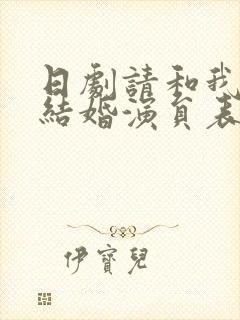 日劇請和我
結婚演員表
伊寶兒